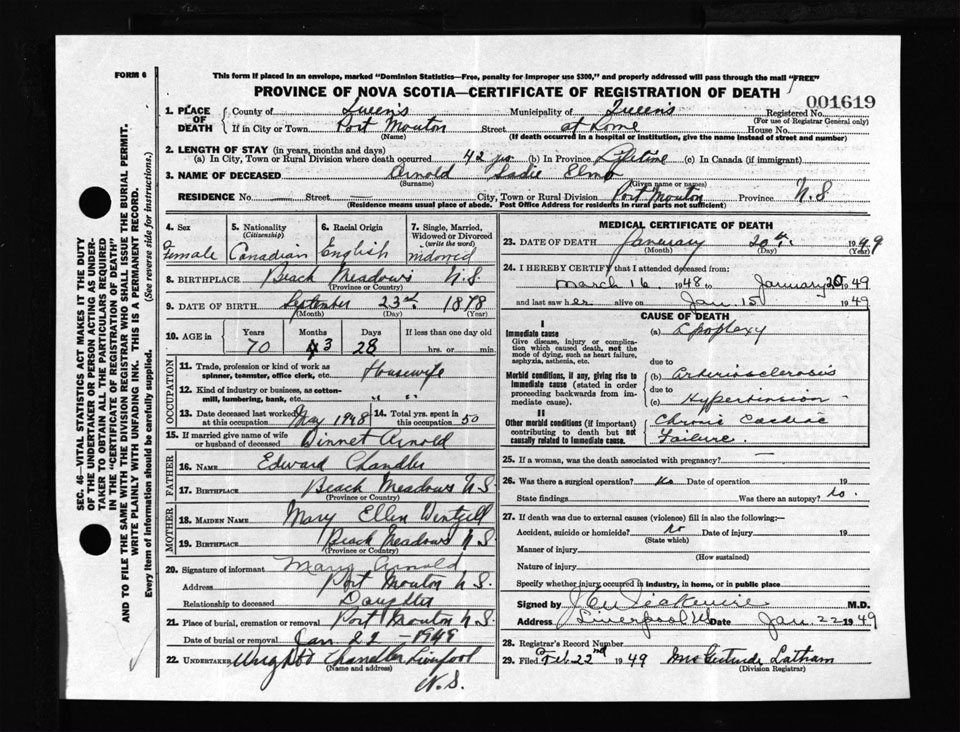 FORM 6
This form if placed in an envelope, marked "Dominion Statistics—Free, penalty for improper use $300," and properly addressed will pass through the mail "FREE"
PROVINCE OF NOVA SCOTIA—CERTIFICATE OF REGISTRATION OF DEATH
001619
1. PLACE OF DEATH County of Queen's Municipality of Queen's Registered No.
(For use of Registrar General only)
If in City or Town Port Mouton Street at Home House No.
(Name) (If death occurred in a hospital or institution, give its name instead of street and number)
2. LENGTH OF STAY (in years, months and days)
(a) In City, Town or Rural Division where death occurred 42 yrs (b) In Province Lifetime (c) In Canada (if immigrant)
3. NAME OF DECEASED Arnold Sadie
(Surname) (Given name or names)
RESIDENCE No. — Street — City, Town or Rural Division Port Mouton Province N.S
(Residence means usual place of abode. Post Office Address for residents in rural parts not sufficient)
4. Sex Female
5. Nationality (Citizenship) Canadian
6. Racial Origin English
7. Single, Married, Widowed or Divorced (write the word) widowed
8. BIRTHPLACE Beach Meadows N.S.
(Province or Country)
9. DATE OF BIRTH September 23rd 1878
(Month) (Day) (Year)
10. AGE in Years Months Days If less than one day old
70 3 28 hrs. or min.
OCCUPATION
11. Trade, profession or kind of work as spinner, teamster, office clerk, etc. Housewife
12. Kind of industry or business, as cotton-mill, lumbering, bank, etc. " "
13. Date deceased last worked at this occupation May 1948 14. Total yrs. spent in this occupation 50
15. If married give name of wife or husband of deceased Arnold
FATHER
16. NAME Edward Chandler
17. BIRTHPLACE Beach Meadows N.S.
(Province or Country)
MOTHER
18. MAIDEN NAME Mary Ellen Wentzell
19. BIRTHPLACE Beach Meadows N.S.
(Province or Country)
20. Signature of informant Mary Arnold
Address Port Mouton N.S.
Relationship to deceased Daughter
21. Place of burial, cremation or removal Port Mouton N.S.
Date of burial or removal Jan. 22 — 1949
22. UNDERTAKER Chandler Liverpool
(Name and address)
N.S.
MEDICAL CERTIFICATE OF DEATH
23. DATE OF DEATH January 20th 1949
(Month) (Day) (Year)
24. I HEREBY CERTIFY that I attended deceased from:
March 16 1948 to January 20 1949
and last saw her alive on Jan. 15 1949
CAUSE OF DEATH
I
Immediate cause
Give disease, injury or complication which caused death, not the mode of dying, such as heart failure, asphyxia, asthenia, etc.
(a) Apoplexy
due to
Morbid conditions, if any, giving rise to immediate cause (stated in order proceeding backwards from immediate cause).
(b) Arteriosclerosis
due to
(c) Hypertension
II
Other morbid conditions (if important) contributing to death but not causally related to immediate cause.
Chronic Cardiac Failure.
25. If a woman, was the death associated with pregnancy? —
26. Was there a surgical operation? No Date of operation 19
State findings Was there an autopsy? No.
27. If death was due to external causes (violence) fill in also the following:—
Accident, suicide or homicide? No Date of injury 19
(State which)
Manner of injury
(How sustained)
Nature of injury
Specify whether injury occurred in industry, in home, or in public place
Signed by M.D.
Address Liverpool NS Date Jan. 22 1949
28. Registrar's Record Number
29. Filed Feb. 22nd 1949 Mrs Gertrude Latham
(Division Registrar)
SEC. 46—VITAL STATISTICS ACT MAKES IT THE DUTY
OF THE UNDERTAKER OR PERSON ACTING AS UNDERTAKER
TO OBTAIN ALL THE PARTICULARS REQUIRED
IN THE "CERTIFICATE OF REGISTRATION OF DEATH"
AND TO FILE THE SAME WITH THE DIVISION REGISTRAR WHO SHALL ISSUE THE BURIAL PERMIT.
WRITE PLAINLY WITH UNFADING INK. THIS IS A PERMANENT RECORD.
Every item of information should be carefully supplied. (See reverse side for instructions.)